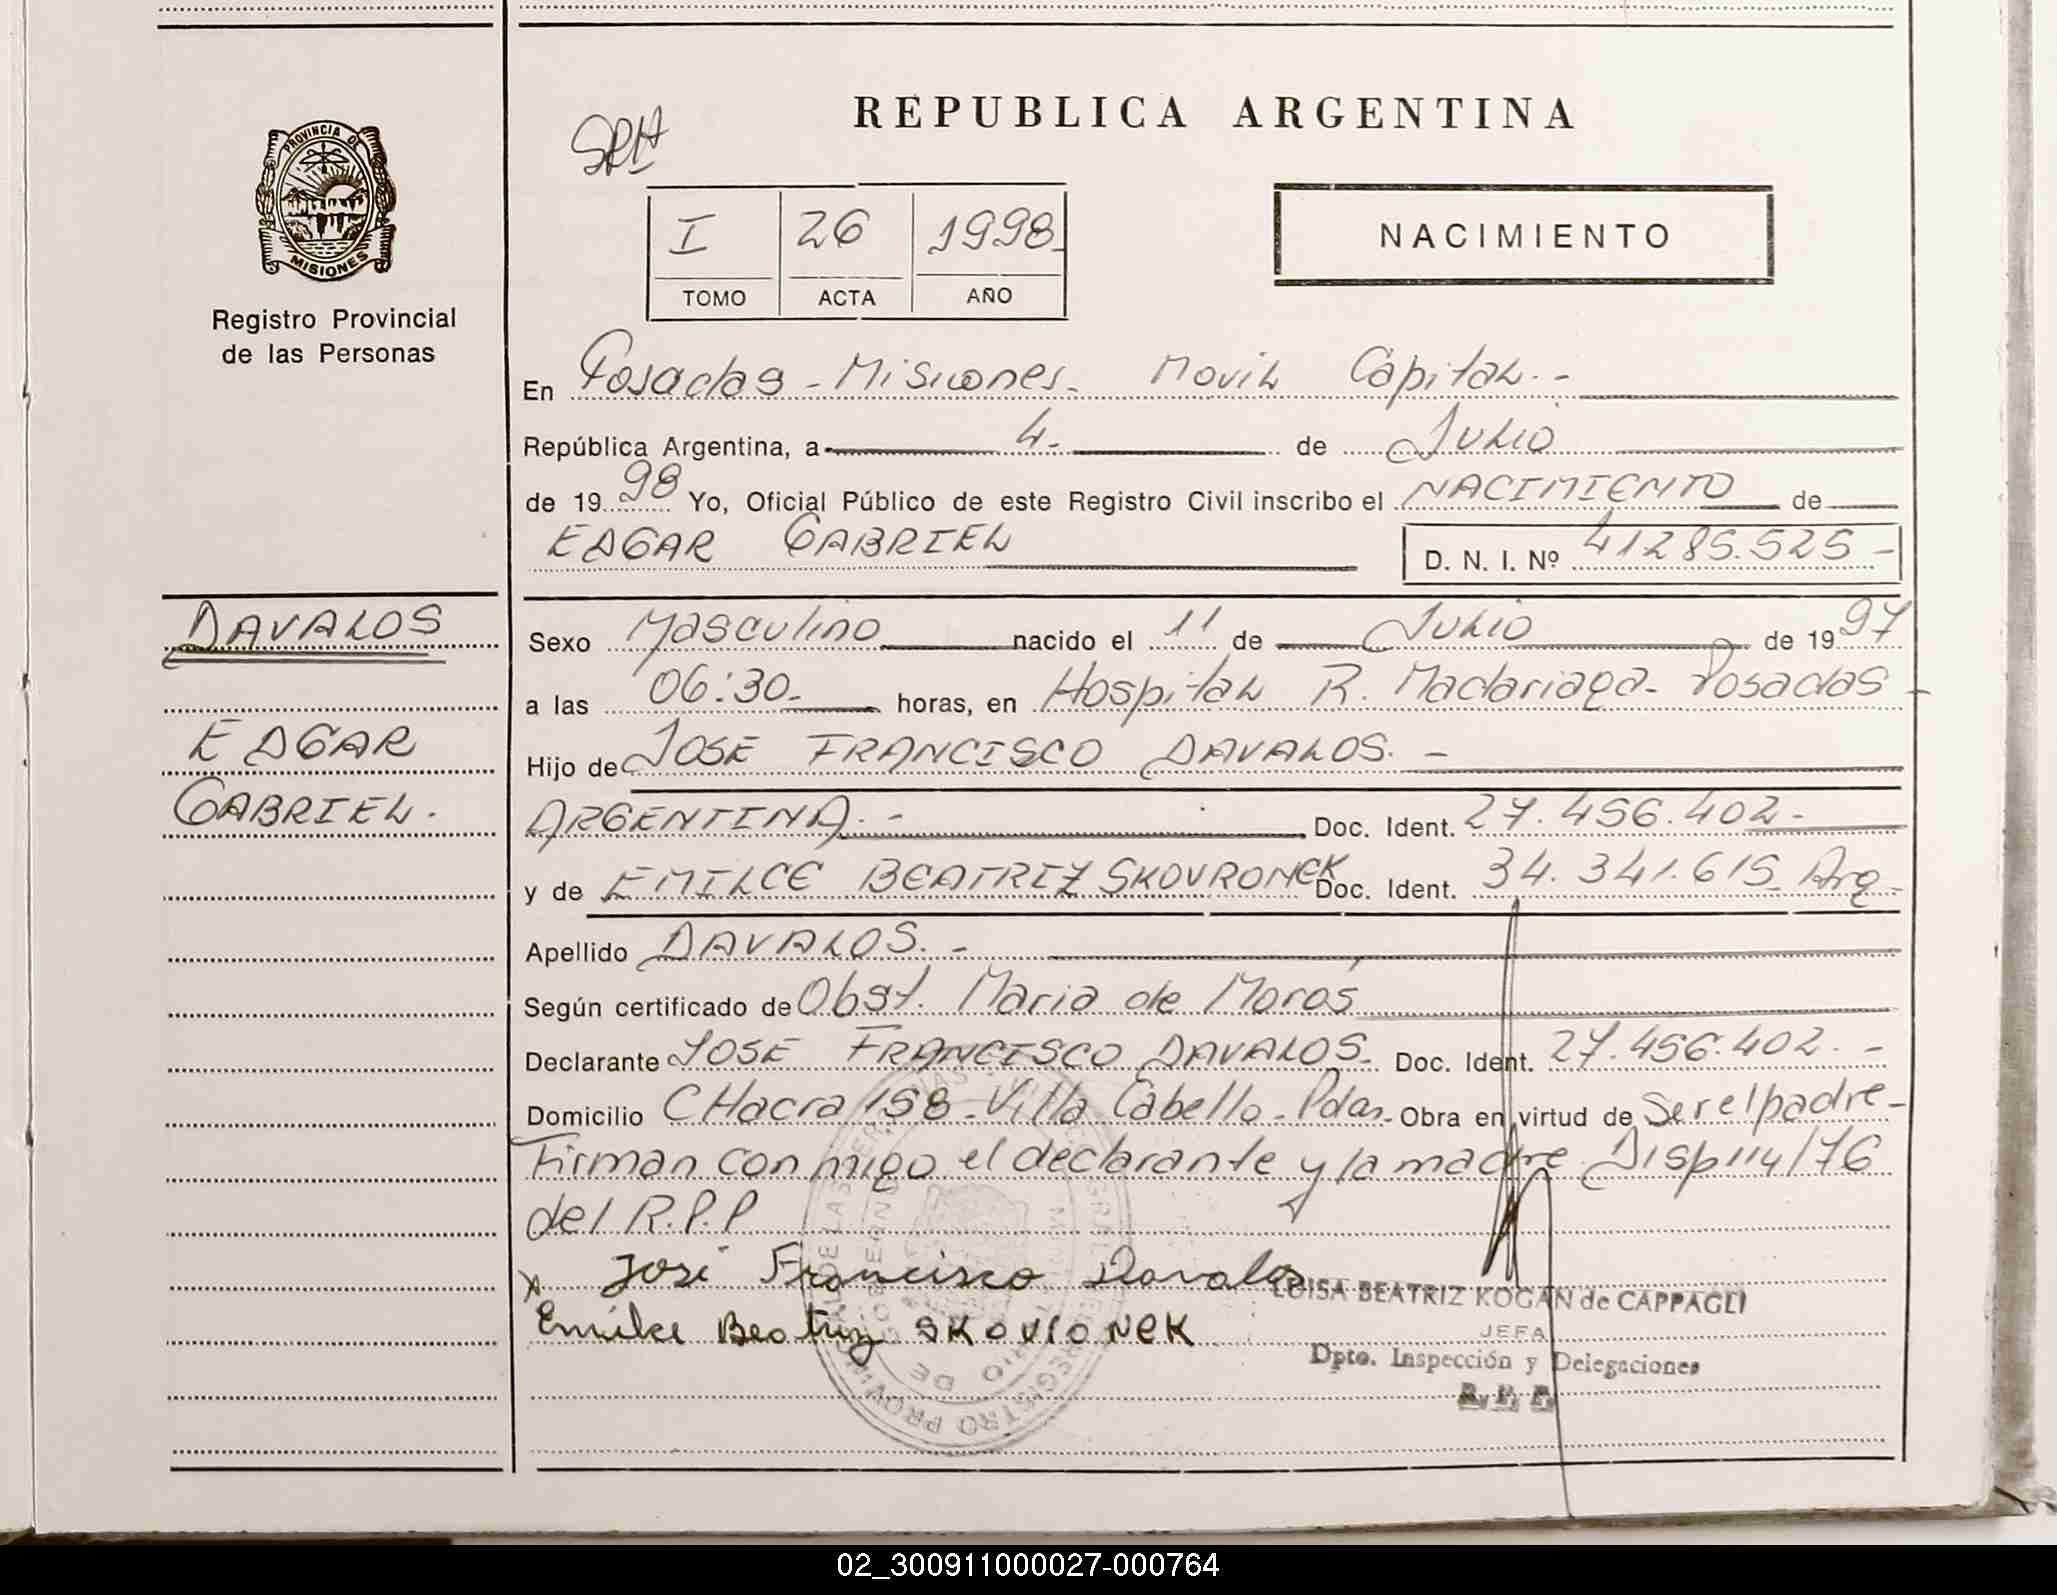 PROVINCIA DE
MISIONES
Registro Provincial
de las Personas
DAVALOS
EDGAR
GABRIEL.
REPUBLICA ARGENTINA
I 26 1998
TOMO ACTA AÑO
NACIMIENTO
En Posadas - Misiones - Movil Capital.-
República Argentina, a 4- de Julio
de 1998 Yo, Oficial Público de este Registro Civil inscribo el NACIMIENTO de
EDGAR GABRIEL D. N. I. Nº 41285.525-
Sexo Masculino nacido el 11 de Julio de 1997
a las 06:30- horas, en Hospital R. Madariaga - Posadas -
Hijo de JOSE FRANCISCO DAVALOS. -
ARGENTINA. - Doc. Ident. 27.456.402-
y de EMILCE BEATRIZ SKOVRONEK Doc. Ident. 34.341.615 Arg-
Apellido DAVALOS. -
Según certificado de Obst. Maria de Moros
Declarante JOSE FRANCISCO DAVALOS- Doc. Ident. 27.456.402. -
Domicilio CHacra 158 - Villa Cabello - Pdas- Obra en virtud de Ser el padre -
Firman con migo el declarante y la madre. Disp 114/76
del R.P.P
x José Francisco Davalos
Emilce Beatriz SKOVRONEK
LUISA BEATRIZ KOGAN de CAPPAGLI
JEFA
Dpto. Inspección y Delegaciones
R. P. P.
02_300911000027-000764